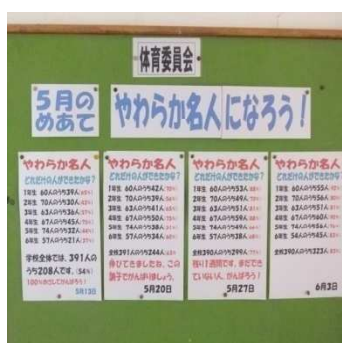 体育委員会
5月の
めあて
やわらか名人になろう！
やわらか名人
どれだけの人ができたかな？
1年生 60人のうち39人
2年生 70人のうち30人
3年生 63人のうち36人
4年生 67人のうち45人
5年生 74人のうち32人
6年生 57人のうち21人
学校全体では、391人の
うち208人です。(54%)
100%めざしてがんばろう！
5月13日
やわらか名人
どれだけの人ができたかな？
1年生 60人のうち42人
2年生 70人のうち
3年生 63人のうち41人
4年生 67人のうち
5年生 74人のうち
6年生 57人のうち34人
全校391人のうち244人
伸びてきましたね。この
調子でがんばりましょう。
5月20日
やわらか名人
どれだけの人ができたかな？
1年生 60人のうち53人
2年生 70人のうち
3年生 63人のうち51人
4年生 67人のうち
5年生 74人のうち
6年生 56人のうち
全校390人のうち299人
残り1週間です。まだでき
ていない人、がんばろう！
5月27日
やわらか名人
どれだけの人ができたかな？
1年生 60人のうち55人
2年生 70人のうち
3年生 63人のうち51人
4年生 67人のうち60人
5年生 74人のうち
6年生 56人のうち45人
全校390人のうち323人
6月3日